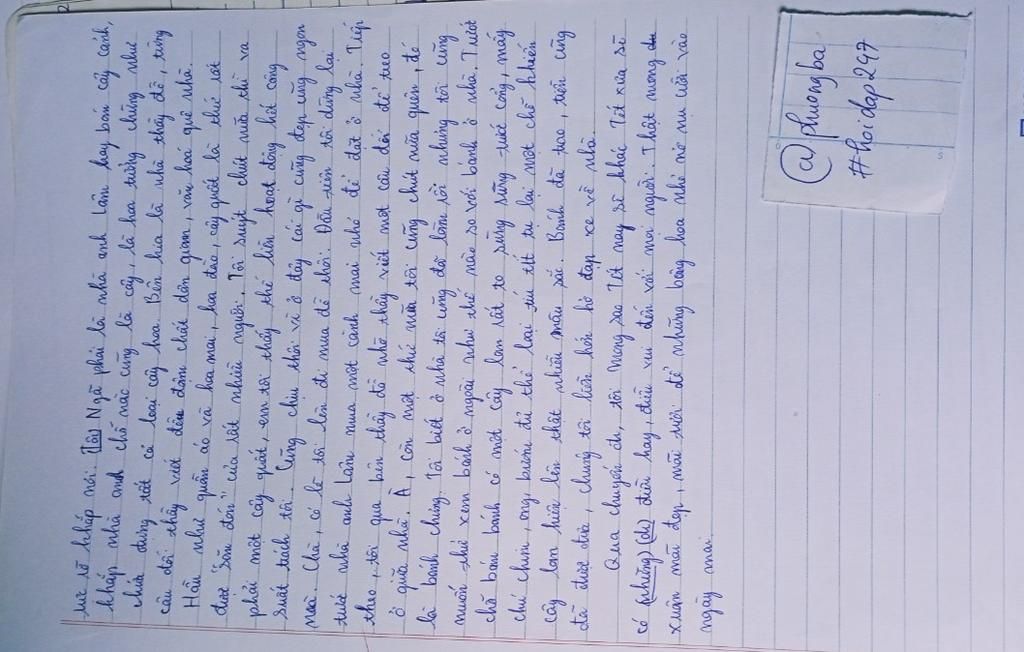 rực rỡ khắp nơi. (Tôi) Ngã phải là nhà anh Lâm hay bán cây cảnh,
khắp nhà anh chỗ nào cũng là cây, là hoa tưởng chừng như
chứa đựng tất cả loại cây hoa. Bên kia là nhà thầy đồ, từng
câu đối thầy viết đều đậm chất dân gian, văn hoá quê nhà.
Hầu như quần áo và hoa mai, hoa đào, cây quất là thứ rất
được "săn đón" của rất nhiều người. Tôi suýt chút nữa thì va
phải một cây quất, em tôi thấy thế liền hoạt động hết công
suất trách tôi. Cũng chịu thôi vì ở đây cái gì cũng đẹp cũng ngon
mà. Chà, có lẽ tôi lên đi mua đồ thôi. Đầu tiên tôi dừng lại
trước nhà anh Lâm mua một cành mai nhỏ để đặt ở nhà. Tiếp
theo, tôi qua bên thầy đồ nhờ thầy viết một câu đối để treo
ở giữa nhà. À, còn một thứ nữa tôi cũng chút nữa quên, đó
là bánh chưng. Tôi biết ở nhà tôi cũng đã làm rồi nhưng tôi cũng
muốn thử xem bánh ở ngoài như thế nào so với bánh ở nhà. Trước
chỗ bán bánh có một cây lan rất to sừng sững trước cổng, mấy
chú chim, ong, bướm đủ thể loại ríu rít tụ lại một chỗ khiến
cây lan hiện lên thật nhiều màu sắc. Bánh đã trao, tiền cũng
đã được đưa, chúng tôi liền hối hả đạp xe về nhà.
Qua chuyến đi, tôi mong sao Tết nay sẽ khác Tết xưa sẽ
có (những) (đi) điều hay, điều vui đến với mọi người. Thật mong
xuân mãi đẹp, mãi tươi để những bông hoa nhỏ nở nụ cười vào
ngày mai.
@phuongba
#hoidap247